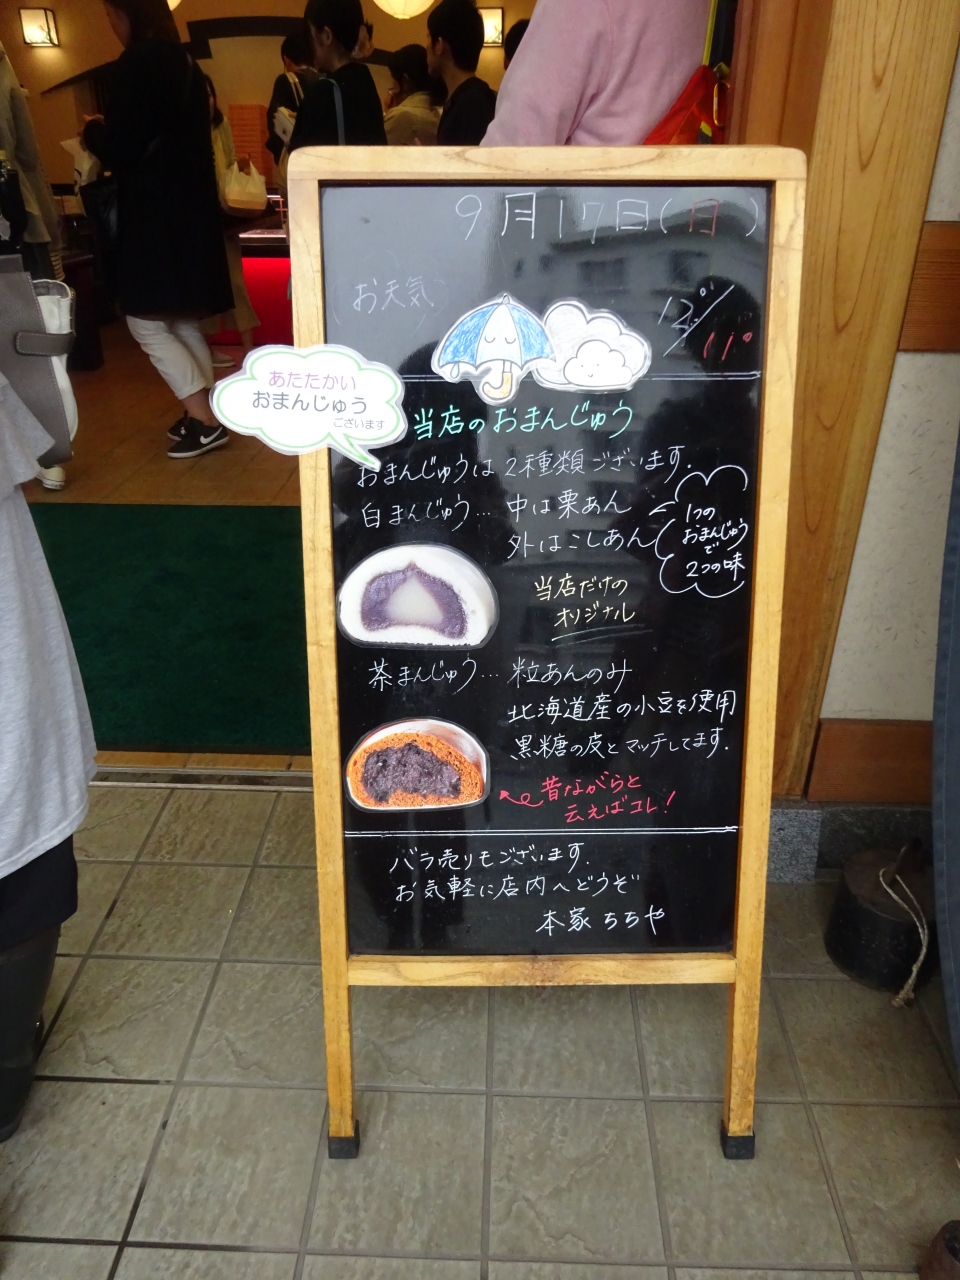 9月17日(日)
お天気
あたたかい
おまんじゅう
ございます
当店のおまんじゅう
おまんじゅうは2種類ございます.
白まんじゅう… 中は栗あん
外はこしあん
1つの
おまんじゅう
で
2つの味
当店だけの
オリジナル
茶まんじゅう… 粒あんのみ
北海道産の小豆を使用
黒糖の皮とマッチしてます.
昔ながらと
云えばコレ!
バラ売りもございます.
お気軽に店内へどうぞ
本家 ちちや